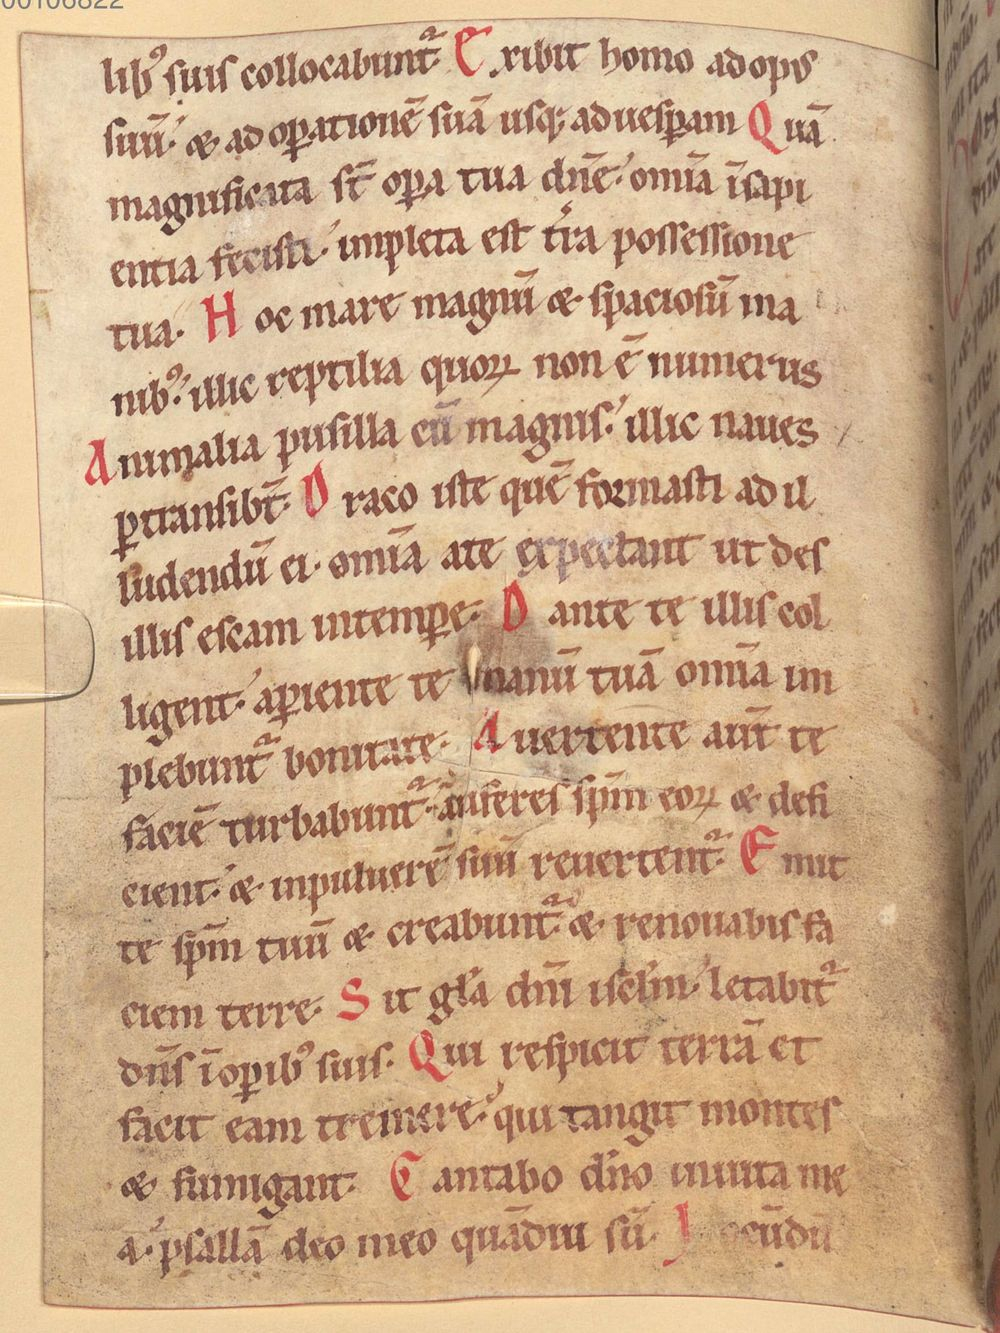 00106822
libꝰ suis collocabunt᷑ Exibit homo ad opꝰ
suū· & ad oꝑationē suā usq; ad uesꝑam Quā
magnificata st̄ oꝑa tua dn̄e· om̄ia ī sapi
entia fecisti· impleta est tr̄a possessione
tua· Hoc mare magnū & spaciosū ma
nibꝰ· illic reptilia quoꝝ non ē numerus
Animalia pusilla cū magnis· illic naues
ꝑtransibt̄· Draco iste quē formasti ad il
ludendū ei· om̄ia a te expectant ut des
illis escam in temꝑe· Dante te illis col
ligent· aꝑiente te manū tuā om̄ia im
plebunt᷑ bonitate· Auertente aut̄ te
faciē turbabunt᷑· auferes sp̄m eoꝝ & defi
cient· & in puluerē suū reuertent᷑· Emit
te sp̄m tuū & creabunt᷑· & renouabis fa
ciem terre· Sit gl̄a dn̄i isc̄lm· letabit᷑
dn̄s ī oꝑibꝰ suis· Qui respicit terrā et
facit eam tremere· qui tangit montes
& fumigant· Cantabo dn̄o in uita me
a· psallā deo meo quādiu sū· Iocūdū